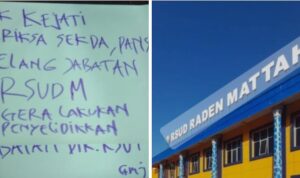 K KEJATI
RIKSA SEKDA, PANS
ELANG JABATAN
RSUD M
GERA LAKUKAN
PENYEGIDIKKAN
RSUD RADEN MATTAH